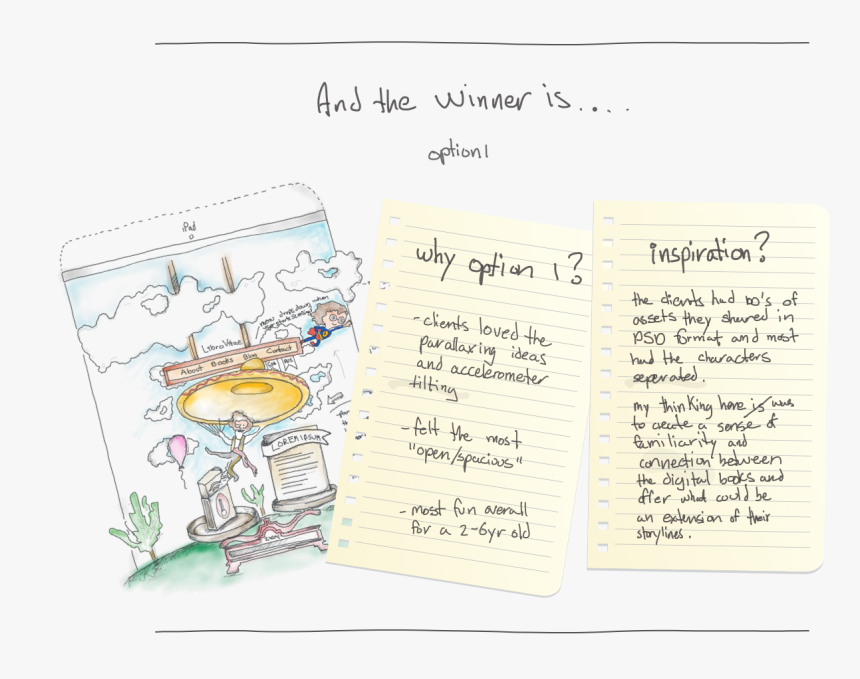 And the winner is....
option 1
iPad
Libro Vitae
About Books Blog Contact
LOREM IPSUM
why option 1?
- clients loved the
parallaxing ideas
and accelerometer
tilting
- felt the most
"open/spacious"
- most fun overall
for a 2-6yr old
inspiration?
the clients had 100's of
assets they shared in
PSD format and most
had the characters
seperated.
my thinking here is was
to create a sense of
familiarity and
connection between
the digital books and
offer what could be
an extension of their
storylines.